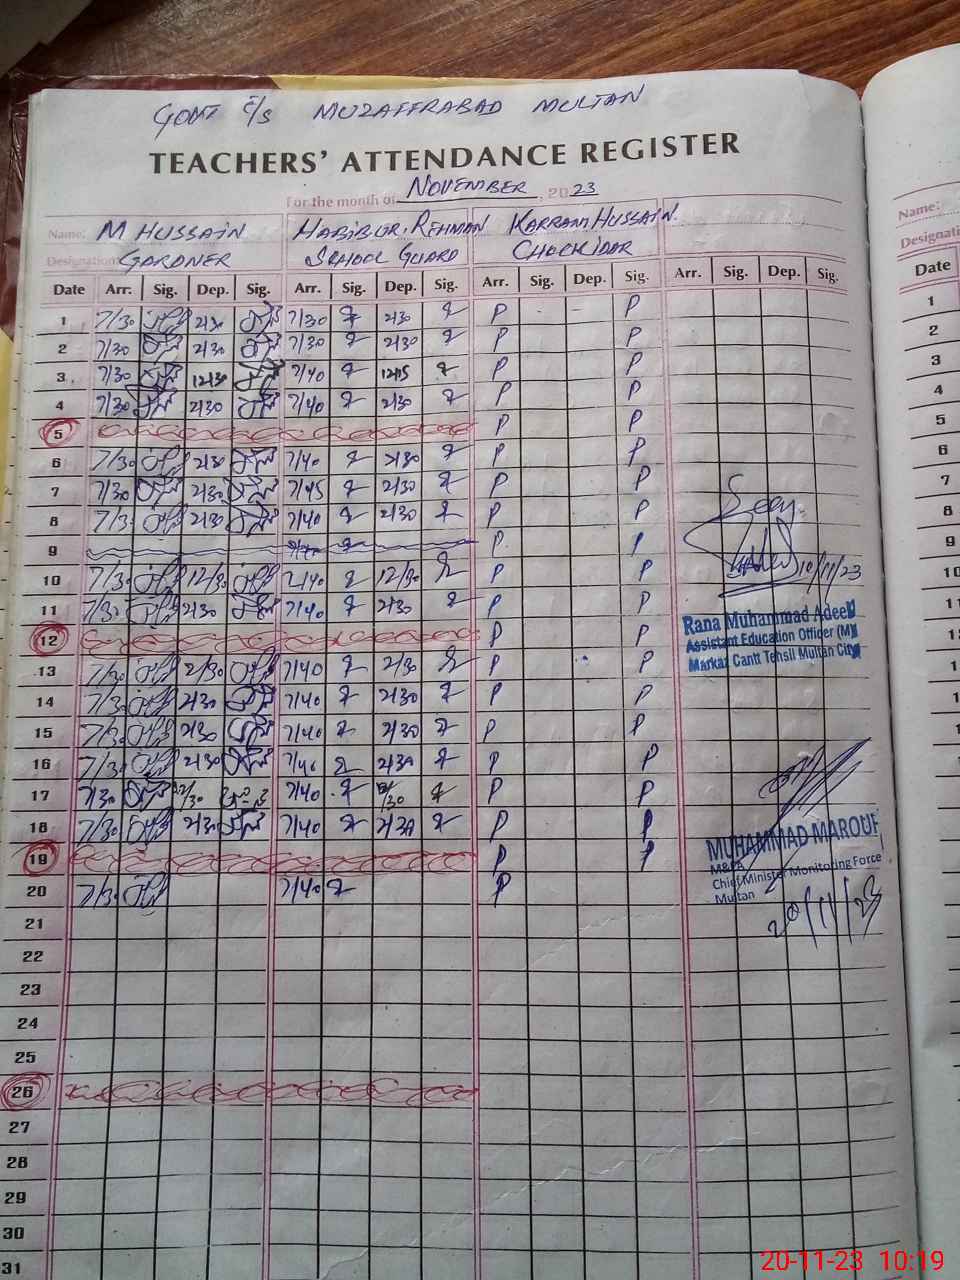 GOVT E/S MUZAFFRABAD MULTAN
TEACHERS' ATTENDANCE REGISTER
For the month of NOVEMBER, 2023
Name: M HUSSAIN HABIBUR.REHMAN KARRAM HUSSAIN.
Designation: GARDNER SCHOOL GUARD CHOCKIDAR
Date Arr. Sig. Dep. Sig. Arr. Sig. Dep. Sig. Arr. Sig. Dep. Sig. Arr. Sig. Dep. Sig.
1 7/30 2/30 7/30 2/30 P P
2 7/30 2/30 7/30 2/30 P P
3 7/30 12/30 7/40 12/15 P P
4 7/30 2/30 7/40 2/30 P P
5 P P
6 7/30 2/30 7/40 2/30 P P
7 7/30 2/30 7/45 2/30 P P
8 7/3 2/30 7/40 2/30 P P
9 P P
10 7/3 12/30 7/40 12/30 P P
11 7/3 2/30 7/40 2/30 P P
12 P P
13 7/3 2/30 7/40 2/30 P P
14 7/3 2/30 7/40 2/30 P P
15 7/3 2/30 7/40 2/30 P P
16 7/3 2/30 7/40 2/30 P P
17 7/30 12/30 7/40 12/30 P P
18 7/30 2/30 7/40 2/30 P P
19 P P
20 7/30 7/40 P
21
22
23
24
25
26
27
28
29
30
31
Seen
10/11/23
Rana Muhammad Adeel
Assistant Education Officer (M)
Markaz Cantt Tehsil Multan City
MUHAMMAD MAROUF
Chief Minister Monitoring Force
Multan
20/11/23
Name:
Designation
Date
1
2
3
4
5
6
7
8
9
10
20-11-23 10:19